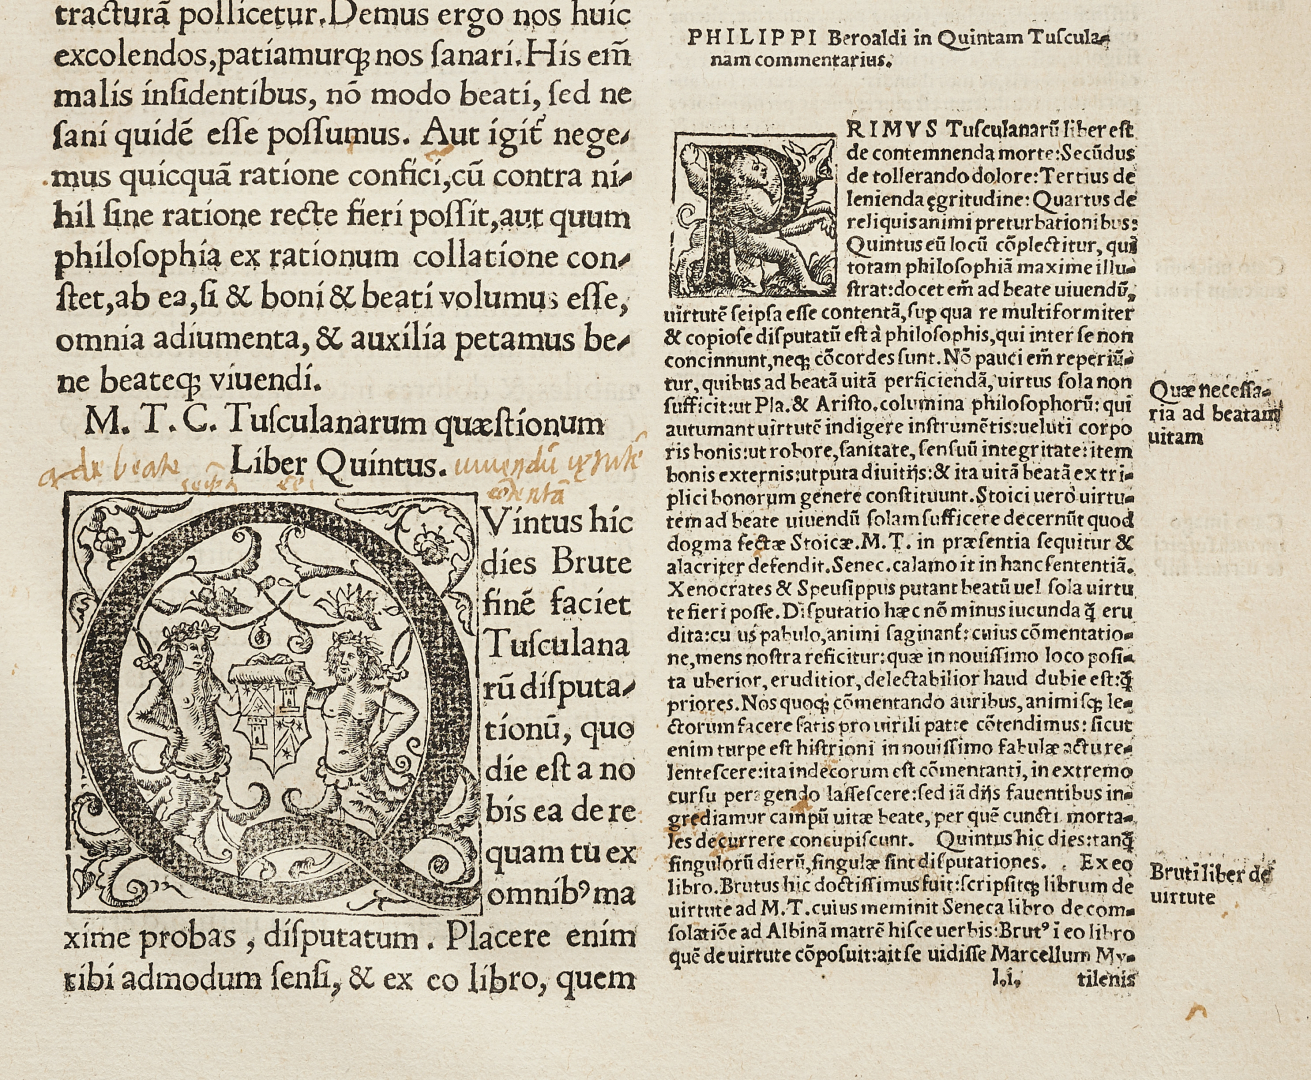 tracturã pollicetur. Demus ergo nos huic
excolendos, patiamurqꝫ nos ſanari. His em̃
malis inſidentibus, nõ modo beati, ſed ne
ſani quidẽ eſſe poſſumus. Aut igit᷑ nege⸗
mus quicquã ratione confici, cũ contra ni⸗
hil ſine ratione recte fieri poſſit, aut quum
philoſophia ex rationum collatione con⸗
ſtet, ab ea, ſi & boni & beati volumus eſſe,
omnia adiumenta, & auxilia petamus be⸗
ne beateqꝫ viuendi.
M. T. C. Tuſculanarum quæſtionum
Liber Quintus.
de beate
uiuendũ
Vintus hic
dies Brute
finẽ faciet
Tuſculana
rũ diſputa⸗
tionũ, quo
die eſt a no
bis ea de re
quam tu ex
omnibꝰ ma
xime probas, diſputatum. Placere enim
tibi admodum ſenſi, & ex eo libro, quem
PHILIPPI Beroaldi in Quintam Tuſcula⸗
nam commentarius.
RIMVS Tuſculanarũ liber eſt
de contemnenda morte: Secũdus
de tollerando dolore: Tertius de
lenienda ęgritudine: Quartus de
reliquis animi preturbationibus:
Quintus eũ locũ cõplectitur, qui
totam philoſophiã maxime illu⸗
ſtrat: docet em̃ ad beate uiuendũ,
uirtutẽ ſeipſa eſſe contentã, ſuꝑ qua re multiformiter
& copioſe diſputatũ eſt à philoſophis, qui inter ſe non
concinnunt, neqꝫ cõcordes ſunt. Nõ pauci em̃ reperiũ⸗
tur, quibus ad beatã uitã perficiendã, uirtus ſola non
ſufficit: ut Pla. & Ariſto. columina philoſophorũ: qui
autumant uirtutẽ indigere inſtrumẽtis: ueluti corpo
ris bonis: ut robore, ſanitate, ſenſuũ integritate: item
bonis externis: utputa diuitijs: & ita uitã beatã ex tri⸗
plici bonorum genere conſtituunt. Stoici uero uirtu⸗
tem ad beate uiuendũ ſolam ſufficere decernũt quod
dogma ſectæ Stoicæ. M. T. in præſentia ſequitur &
alacriter defendit. Senec. calamo it in hanc ſententiã.
Xenocrates & Speuſippus putant beatũ uel ſola uirtu
te fieri poſſe. Diſputatio hæc nõ minus iucunda q̃ eru
dita: cu us pabulo, animi ſaginant᷑: cuius cõmentatio⸗
ne, mens noſtra reficitur: quæ in nouiſſimo loco poſi⸗
ta uberior, eruditior, delectabilior haud dubie eſt: q̃
priores. Nos quoqꝫ cõmentando auribus, animiſqꝫ le⸗
ctorum facere ſatis pro uirili parte cõtendimus: ſicut
enim turpe eſt hiſtrioni in nouiſſimo fabulæ actu re⸗
lenteſcere: ita indecorum eſt cõmentanti, in extremo
curſu peragendo laſſeſcere: ſed iã dijs fauentibus in⸗
grediamur campũ uitæ beate, per quẽ cuncti morta⸗
les decurrere concupiſcunt. Quintus hic dies: tanq̃
ſingulorũ dierũ, ſingulæ ſint diſputationes. Ex eo
libro. Brutus hic doctiſſimus fuit: ſcripſitqꝫ librum de
uirtute ad M. T. cuius meminit Seneca libro de com⸗
ſolatiõe ad Albinã matrẽ hiſce uerbis: Brutꝰ i eo libro
quẽ de uirtute cõpoſuit: ait ſe uidiſſe Marcellum My⸗
l.i. tilenis
Quæ neceſſa⸗
ria ad beatam
uitam
Bruti liber de
uirtute